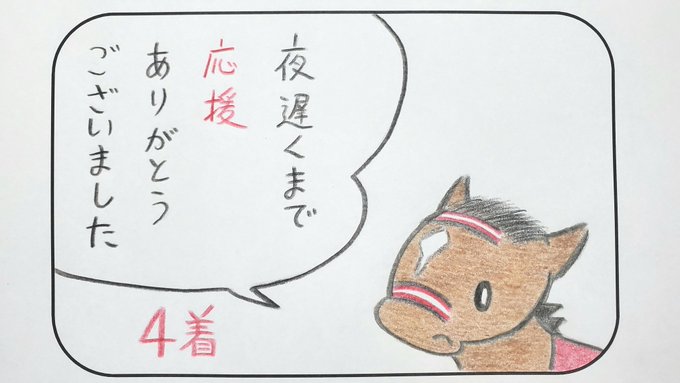 夜遅くまで
応援
ありがとう
ございました
4着